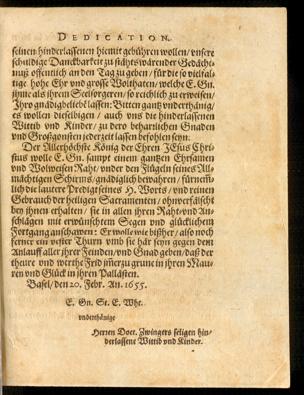 DEDICATION.
seinen hinderlassenen hiemit gebühren wollen / vnsere
schuldige Danckbarkeit zu stähtswärender Gedächt-
nuß offentlich an den Tag zu geben / für die so vielfal-
tige hohe Ehr vnd grosse Wolthaten / welche E. Gn.
jhme als jhrem Seelsorgeren / so reichlich zu erweisen /
Ihro gnädig beliebt lassen: Bitten gantz vnderthänig /
es wollen dieselbigen / auch vns die hinderlassenen
Wittib vnd Kinder / zu dero beharzlichen Gnaden
vnd Großgonsten jederzeit lassen befohlen seyn.
Der Allerhöchste König der Ehren JEsus Chri-
stus wolle E. Gn. sampt einem gantzen Ehrsamen
vnd Wolweisen Raht / vnder den Flügeln seines All-
mächtigen Schirms / gnädiglich bewahren / fürnem-
lich die lautere Predigt seines H. Worts / vnd reinen
Gebrauch der heiligen Sacramenten / ohnverfälscht
bey jhnen erhalten / sie in allen jhren Raht vnd An-
schlägen mit erwünschtem Segen vnd glücklichem
Fortgang anschawen: Er wolle wie bißher / also noch
ferner ein vester Thurn vmb sie här seyn gegen dem
Anlauff aller jhrer Feinden / vnd Gnad geben / daß der
theure vnd werthe Frid jmerzu grune in jhren Mau-
ren vnd Glück in jhren Pallästen.
Basel / den 20. Febr. An. 1655.
E. Gn. St. E. Wht.
vnderthänige
Herren Doct. Zwingers seligen hin-
derlassene Wittib vnd Kinder.